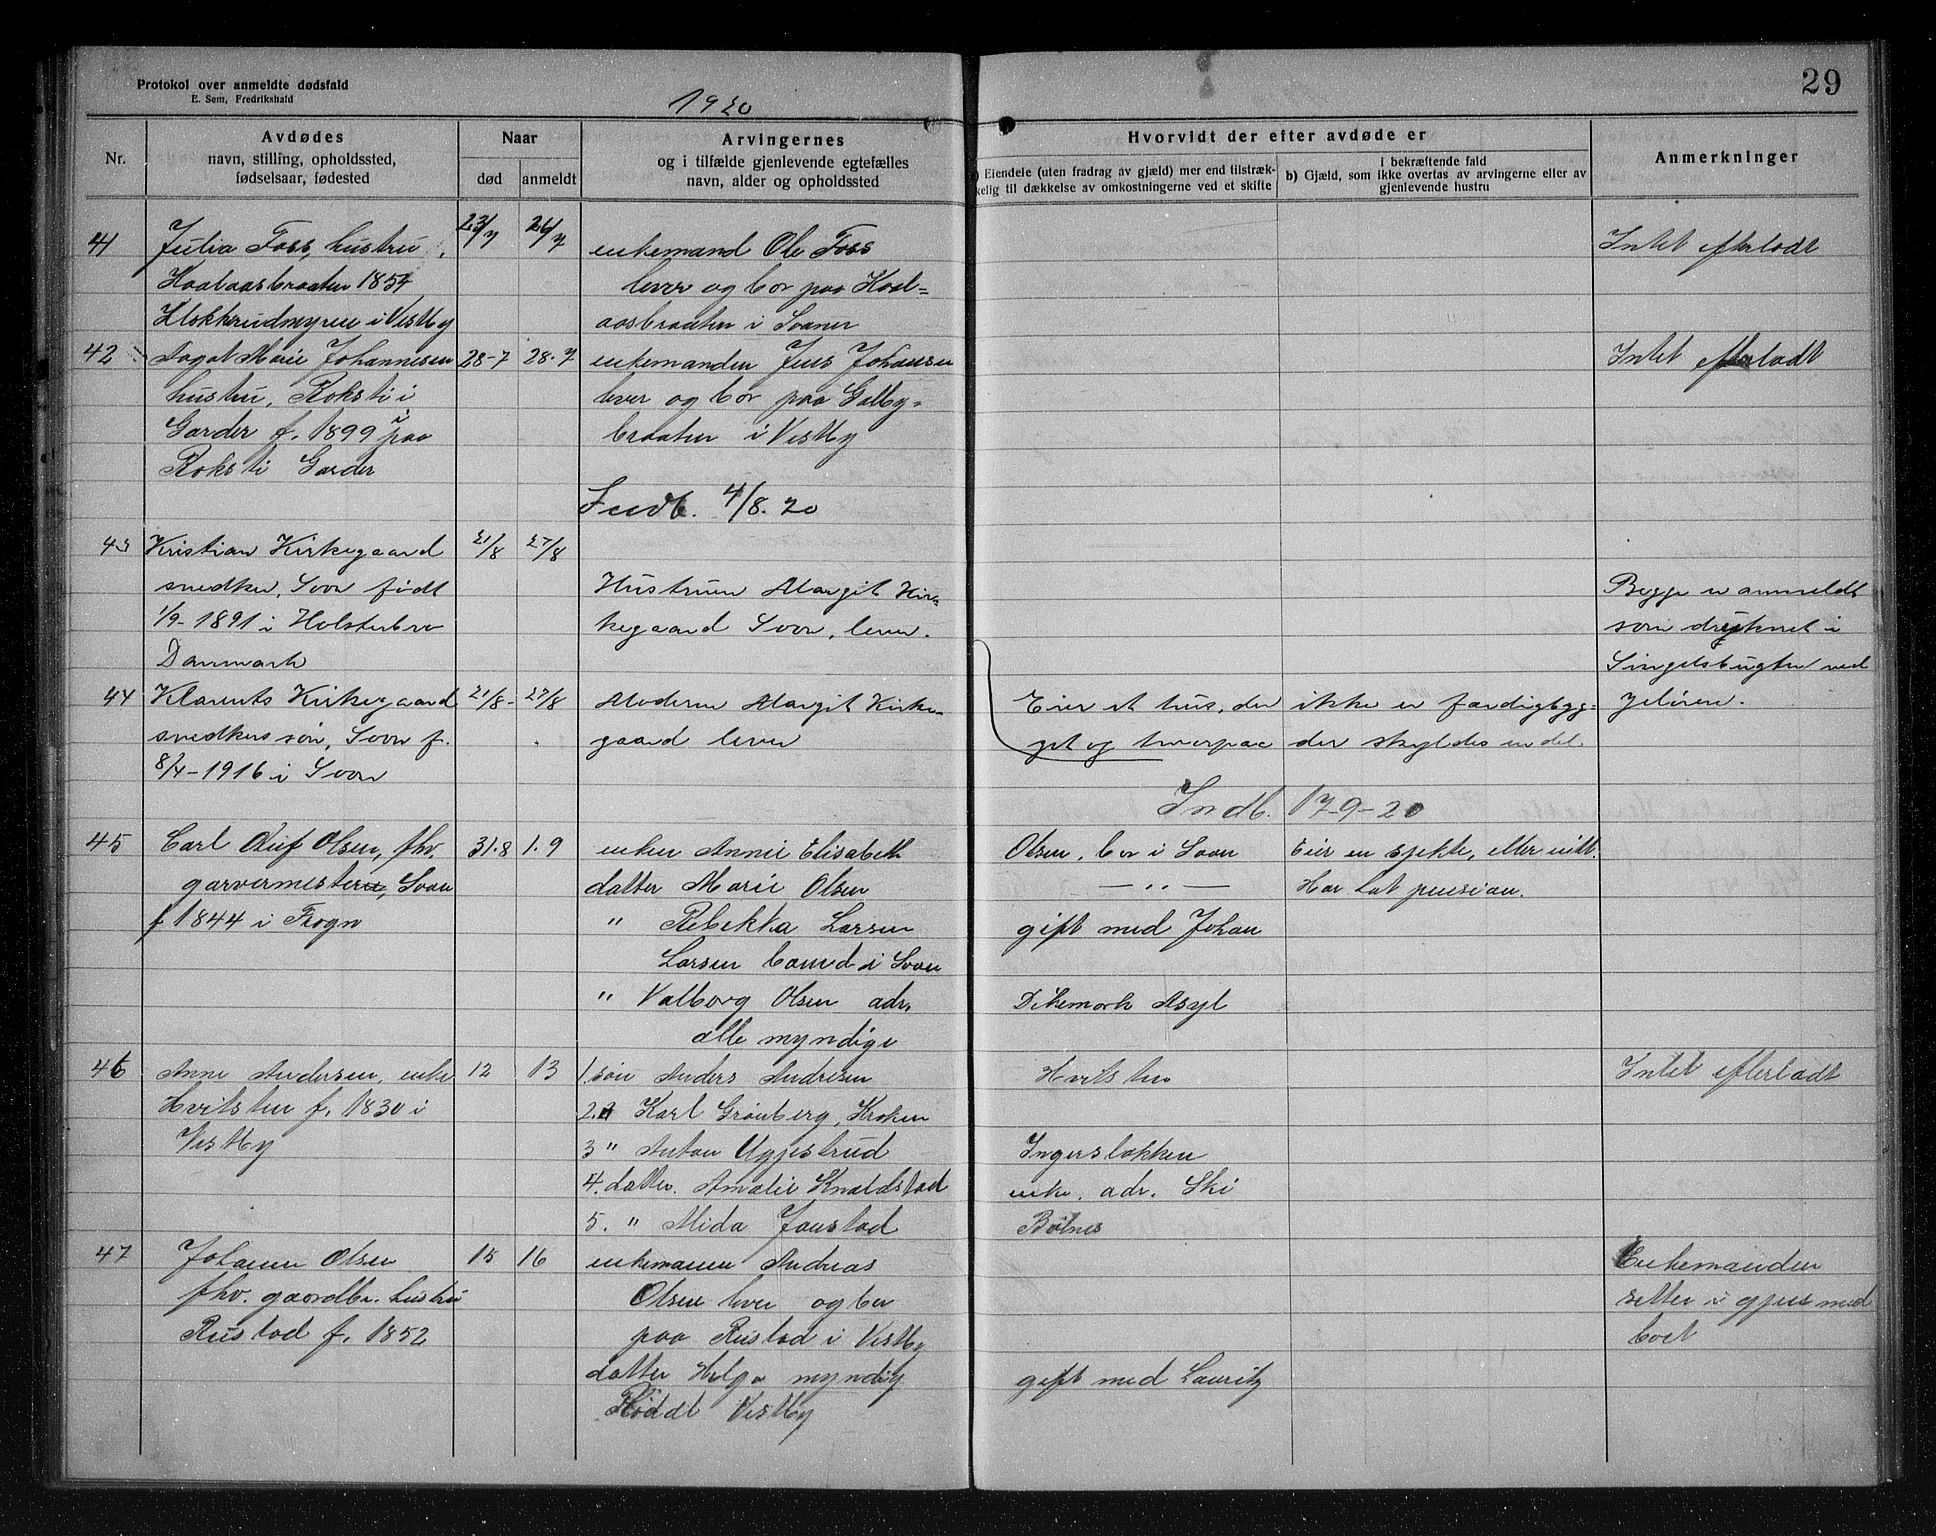 Protokol over anmeldte dødsfald
E. Sem, Fredrikshald
1920
29
Nr.
Avdødes
navn, stilling, opholdssted,
fødselsaar, fødested
Naar
død
anmeldt
Arvingernes
og i tilfælde gjenlevende egtefælles
navn, alder og opholdssted
Hvorvidt der efter avdøde er
Eiendele (uten fradrag av gjæld) mer end tilstræk-
kelig til dækkelse av omkostningerne ved et skifte
i bekræftende fald
b) Gjæld, som ikke overtas av arvingerne eller av
gjenlevende hustru
Anmerkninger
41 Julia Foss, hustru 23/7 26/7 enkemand Ole Foss Intet efterladt
1854 lever og bor paa Kaal=
i Vestby aasbraaten i Soner
42 Dagot Marie Johannesen 28-7 28-7 enkemanden Jens Johansen Intet efterladt
hustru, Roksti i lever og bor paa Galby-
Garder f. 1899 i paa braaten i Vestby
Roksti Garder
Indb. 4/8. 20
43 Kristian Kirkegaard 21/8 27/8
snedker, Soon født Hustruen Margit Kir- Begge er anmeldt
1/9-1891 i Holsterbro kegaard Soon, lever. som druknet i
Danmark Singelsbugten ved
44 Klarents Kirkegaard 21/8- 27/8 Moderen Margit Kirke- Eier et hus, der ikke er færdigbyg- Jeløien.
snedkers søn, Soon f. gaard lever get og hvorpaa der skyldes en del.
8/4-1916 i Soon
Indb. 17-9-20
45 Carl Oluf Olsen, fhv. 31.8 1.9 enken Annie Elisabeth Olsen, bor i Soon Eier en sjekte, ellers intt.
garvermester, Soon datter Marie Olsen —〃— Har hat pension.
f 1844 i Frogn 〃 Rebekka Larsen gift med Johan
Larsen bænd i Soon
〃 Valborg Olsen adr. Dikemark Asyl
alle myndige
46 Anne Andersen, enke 12 13 1. søn Anders Andresen Hvitsten Intet efterladt
Hvitsten f. 1830 i 2. 〃 Karl Grønberg, Kroken
Vestby 3 〃 Anton Ugjestrud Ingerslokken
4. datter. Amalie Knaldstad enke. adr. Ski
5. 〃 Mida Jonstad Bølnes
47 Johanne Olsen 15 16 enkemannen Andreas Enkemanden
fhv. gaardbr. hustru Olsen lever og bor sitter i gjen med
Rustad f. 1852 paa Rustad i Vestby boet
datter Helga myndig gift med Lauritz
Røddt Vestby